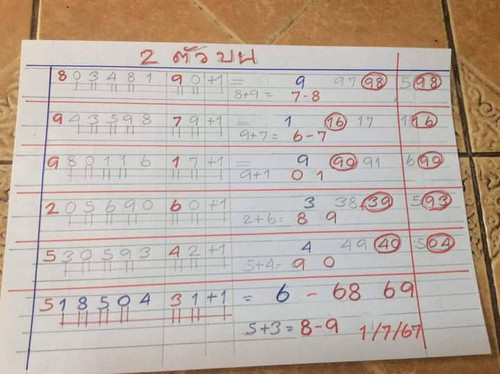 2 ตัวบน
803481 90+1 = 9 97 98 598
8+9= 7-8
943598 79+1 = 1 16 17 116
9+7= 6-7
980116 17+1 = 9 90 91 690
9+1 0 1
205690 60+1 3 38,39 593
2+6= 8 9
530593 42+1 4 49 40 504
5+4= 9 0
518504 31+1 = 6 - 68 69
5+3=8-9 1/7/67